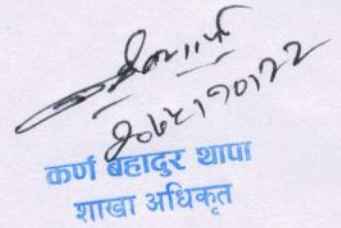 २०७५।१०।२२
कर्ण बहादुर थापा
शाखा अधिकृत